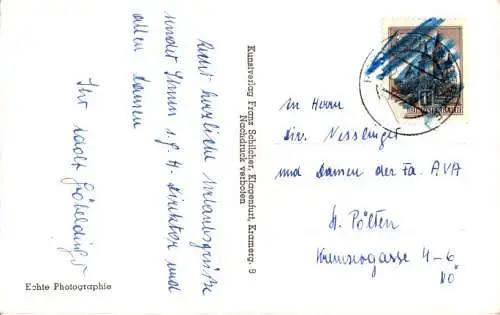 Recht herzliche Urlaubsgrüße
sendet Ihnen s. g. H. Direktor und
allen Damen
Ihr
Kunstverlag Franz Schilcher, Klagenfurt, Kramerg. 9
Nachdruck verboten
Echte Photographie
An Herrn
Dir. Nesslinger
und Damen der Fa. AVA
St. Pölten
Kremsergasse 4-6
NÖ